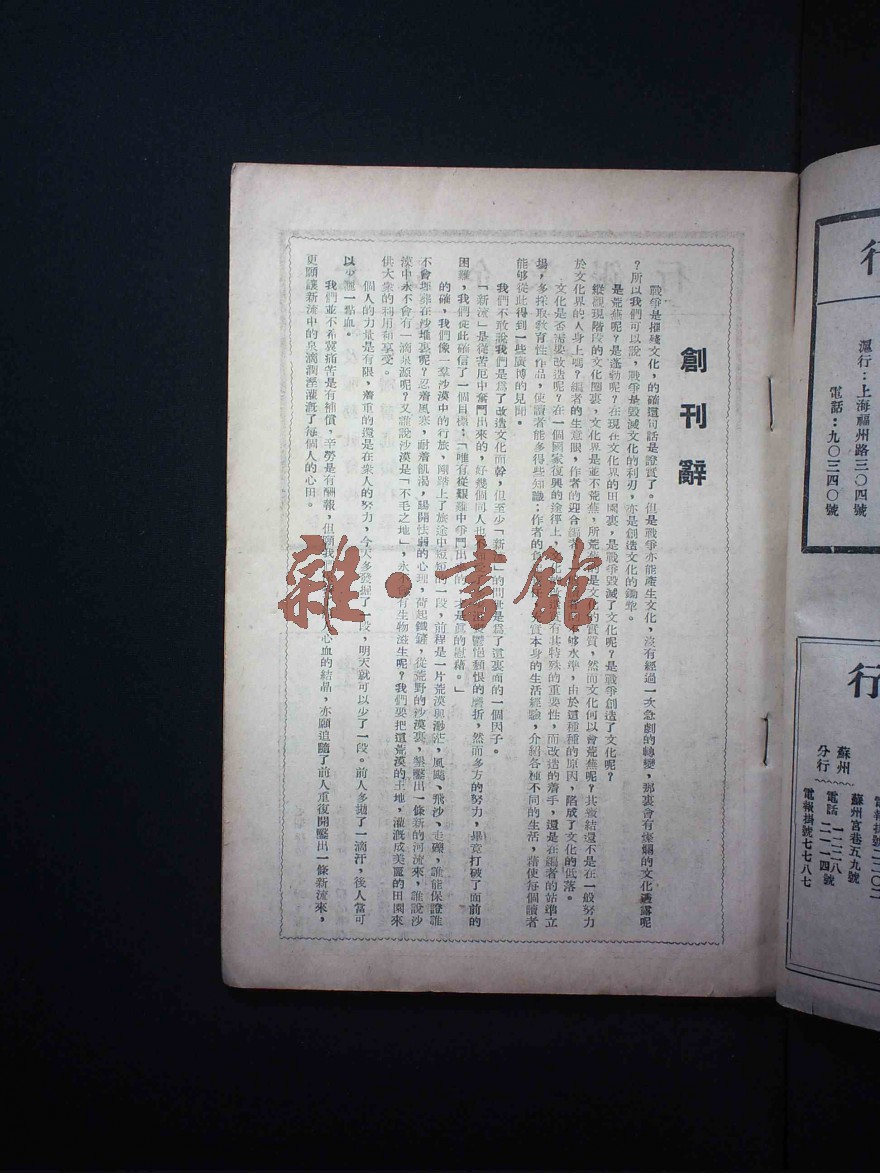 創刊辭
戰爭是摧殘文化，的確這句話是證實了。但是戰爭亦能產生文化，沒有經過一次急劇的轉變，那裏會有燦爛的文化透露呢
？所以我們可以說，戰爭是毀滅文化的利刃，亦是創造文化的鋤犂。
是荒蕪呢？是蓬勃呢？在現在文化界的田園裏，是戰爭毀滅了文化呢？是戰爭創造了文化呢？
縱觀現階段的文化圈裏，文化界是並不荒蕪，所荒蕪的是文化的實質，然而文化何以會荒蕪呢？其癥結還不是在一般努力
於文化界的人身上嗎？編者的生意眼，作者的迎合編者，夠水準，由於這種種的原因，陷成了文化的低落。
文化是否需要改造呢？在一個國家復興的途徑上，文化有其特殊的重要性，而改造的着手，還是在編者的站準立
場，多採取教育性作品，使讀者能多得些知識；作者的實本身的生活經驗，介紹各種不同的生活，藉使每個讀者
能够從此得到一些廣博的見聞。
我們不敢說我們是爲了改造文化而幹，但至少「新流」的問世是爲了這裏面的一個因子。
「新流」是從苦厄中奮鬥出來的，好幾個同人也的磨折，然而多方的努力，畢竟打破了面前的
困難，我們從此確信了一個目標：「唯有從艱難中爭鬥出的，才是眞的慰藉。」
的確，我們像一羣沙漠中的行旅，剛踏上了旅途中短短的一段，前程是一片荒漠與渺茫，風飈、飛沙、走礫，誰能保證誰
不會埋葬在沙堆裏呢？忍着風寒，耐着飢渴，賜開怯弱的心理，荷起鐵鏟，從荒野的沙漠裏，墾鑿出一條新的河流來，誰說沙
漠中永不會有一滴泉源呢？又誰說沙漠是「不毛之地」，永不會有生物滋生呢？我們要把這荒漠的土地，灌溉成美麗的田園來
供大衆的利用和享受。
個人的力量是有限，着重的還是在衆人的努力，今天多發掘了一段，明天就可以少了一段。前人多拋了一滴汗，後人當可
以少灑一點血。
我們並不希冀痛苦是有補償，辛勞是有酬報，但願我們心血的結晶，亦願追隨了前人重復開鑿出一條新流來，
更願讓新流中的泉滴潤溼灌溉了每個人的心田。
雜·書館
行
滬行：上海福州路三〇四號
電話：九〇三四〇號
行
蘇州分行
蘇州宮巷五九號
電話
電報掛號七七八七